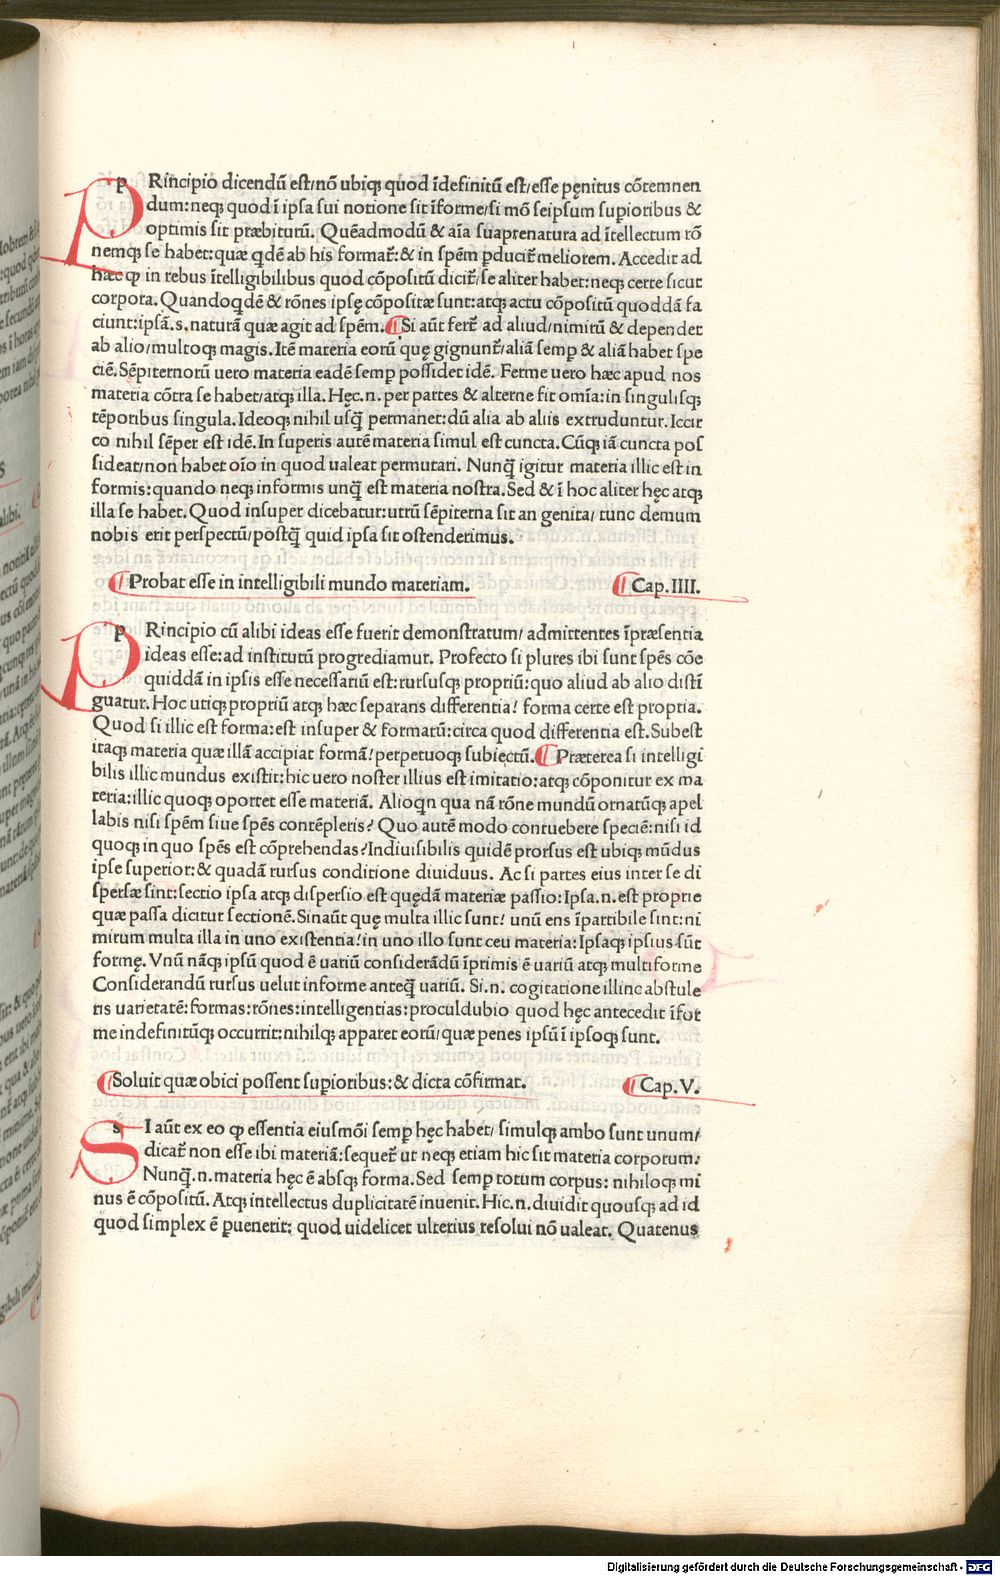 PRincipio dicendũ est/nõ ubiqꝫ quod ĩdefinitũ est/esse pęnitus cõtemnen
dum:neqꝫ quod ĩ ipsa sui notione sit ĩforme/si mõ seipsum supioribus &
optimis sit præbiturũ. Quẽadmodũ & aĩa suaprenatura ad ĩtellectum rõ
nemqꝫ se habet:quæ qdẽ ab his format̃:& in spẽm ꝑducit̃ meliorem. Accedit ad
hæc ꝙ in rebus ĩtelligibilibus quod cõpositũ dicit̃/se aliter habet:neqꝫ certe sicut
corpora. Quandoqdẽ & rõnes ipsę cõpositæ sunt:atqꝫ actu cõpositũ quoddã fa
ciunt:ipsã.s.naturã quæ agit ad spẽm. ¶Si aũt fert̃ ad aliud/nimirũ & dependet
ab alio/multoqꝫ magis. Itẽ materia eorũ quę gignunt̃/aliã semꝑ & aliã habet spe
ciẽ. Sẽpiternorũ uero materia eadẽ semꝑ possidet idẽ. Ferme uero hæc apud nos
materia cõtra se habet/atqꝫ illa. Hęc.n. per partes & alterne fit omĩa:in singulisqꝫ
tẽporibus singula. Ideoqꝫ nihil usq̃ permanet:dũ alia ab aliis extruduntur. Iccir
co nihil sẽper est idẽ. In superis autẽ materia simul est cuncta. Cũqꝫ iã cuncta pos
sideat/non habet oĩo in quod ualeat permutari. Nunq̃ igitur materia illic est in
formis:quando neqꝫ informis unq̃ est materia nostra. Sed & ĩ hoc aliter hęc atqꝫ
illa se habet. Quod insuper dicebatur:utrũ sẽpiterna sit an genita/ tunc demum
nobis erit perspectũ/postq̃ quid ipsa sit ostenderimus.
¶Probat esse in intelligibili mundo materiam. ¶Cap.IIII.
PRincipio cũ alibi ideas esse fuerit demonstratum/ admittentes ĩpræsentia
ideas esse:ad institutũ progrediamur. Profecto si plures ibi sunt spẽs cõe
quiddã in ipsis esse necessariũ est:rursusqꝫ propriũ:quo aliud ab alio distĩ
guatur. Hoc utiqꝫ propriũ atqꝫ hæc separans differentia/ forma certe est propria.
Quod si illic est forma:est insuper & formatũ:circa quod differentia est. Subest
itaqꝫ materia quæ illã accipiat formã/ perpetuoqꝫ subiectũ. ¶Præterea si intelligi
bilis illic mundus existit:hic uero noster illius est imitatio:atqꝫ cõponitur ex ma
teria:illic quoqꝫ oportet esse materiã. Alioqn qua nã rõne mundũ ornatũqꝫ apel
labis nisi spẽm siue spẽs contẽpleris? Quo autẽ modo contuebere speciẽ:nisi id
quoqꝫ in quo spẽs est cõprehendas?Indiuisibilis quidẽ prorsus est ubiqꝫ mũdus
ipse superior:& quadã rursus conditione diuiduus. Ac si partes eius inter se di
spersæ sint:sectio ipsa atqꝫ dispersio est quędã materiæ passio:Ipsa.n.est proprie
quæ passa dicitur sectionẽ. Sinaũt quę multa illic sunt/ unũ ens ĩpartibile sint:ni
mirum multa illa in uno existentia/in uno illo sunt ceu materia:Ipsaqꝫ ipsius sũt
formę. Vnũ nãqꝫ ipsũ quod ẽ uariũ considerãdũ ĩprimis ẽ uariũ atqꝫ multiforme
Considerandũ rursus uelut informe anteq̃ uariũ. Si.n. cogitatione illinc abstule
ris uarietatẽ:formas:rõnes:intelligentias:proculdubio quod hęc antecedit ĩfor
me indefinitũqꝫ occurrit:nihilqꝫ apparet eorũ/quæ penes ipsũ ĩ ipsoqꝫ sunt.
¶Soluit quæ obici possent suꝑioribus:& dicta cõfirmat. ¶Cap.V.
SI aũt ex eo ꝙ essentia eiusmõi semꝑ hęc habet/ simulqꝫ ambo sunt unum/
dicat̃ non esse ibi materiã:sequet̃ ut neqꝫ etiam hic sit materia corporum.
Nunq̃.n.materia hęc ẽ absqꝫ forma. Sed semꝑ totum corpus: nihiloqꝫ mi
nus ẽ cõpositũ. Atqꝫ intellectus duplicitatẽ inuenit. Hic.n.diuidit quousqꝫ ad id
quod simplex ẽ ꝑuenerit: quod uidelicet ulterius resolui nõ ualeat. Quatenus
Digitalisierung gefördert durch die Deutsche Forschungsgemeinschaft - DFG